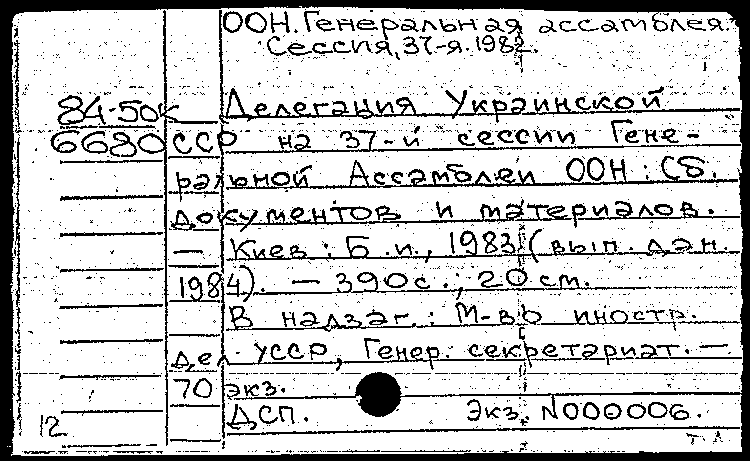 ООН. Генеральная ассамблея.
Сессия, 37-я. 1982.
84-50к Делегация Украинской
6680 ССР на 37-й сессии Гене-
ральной Ассамблеи ООН: Сб.
документов и материалов.
— Киев: Б.и., 1983 (вып. дан.
1984). — 390с.; 20 см.
В надзаг.: М-во иностр.
дел УССР, Генер. секретариат. —
70 экз.
ДСП. Экз. №000006.
12
т-л